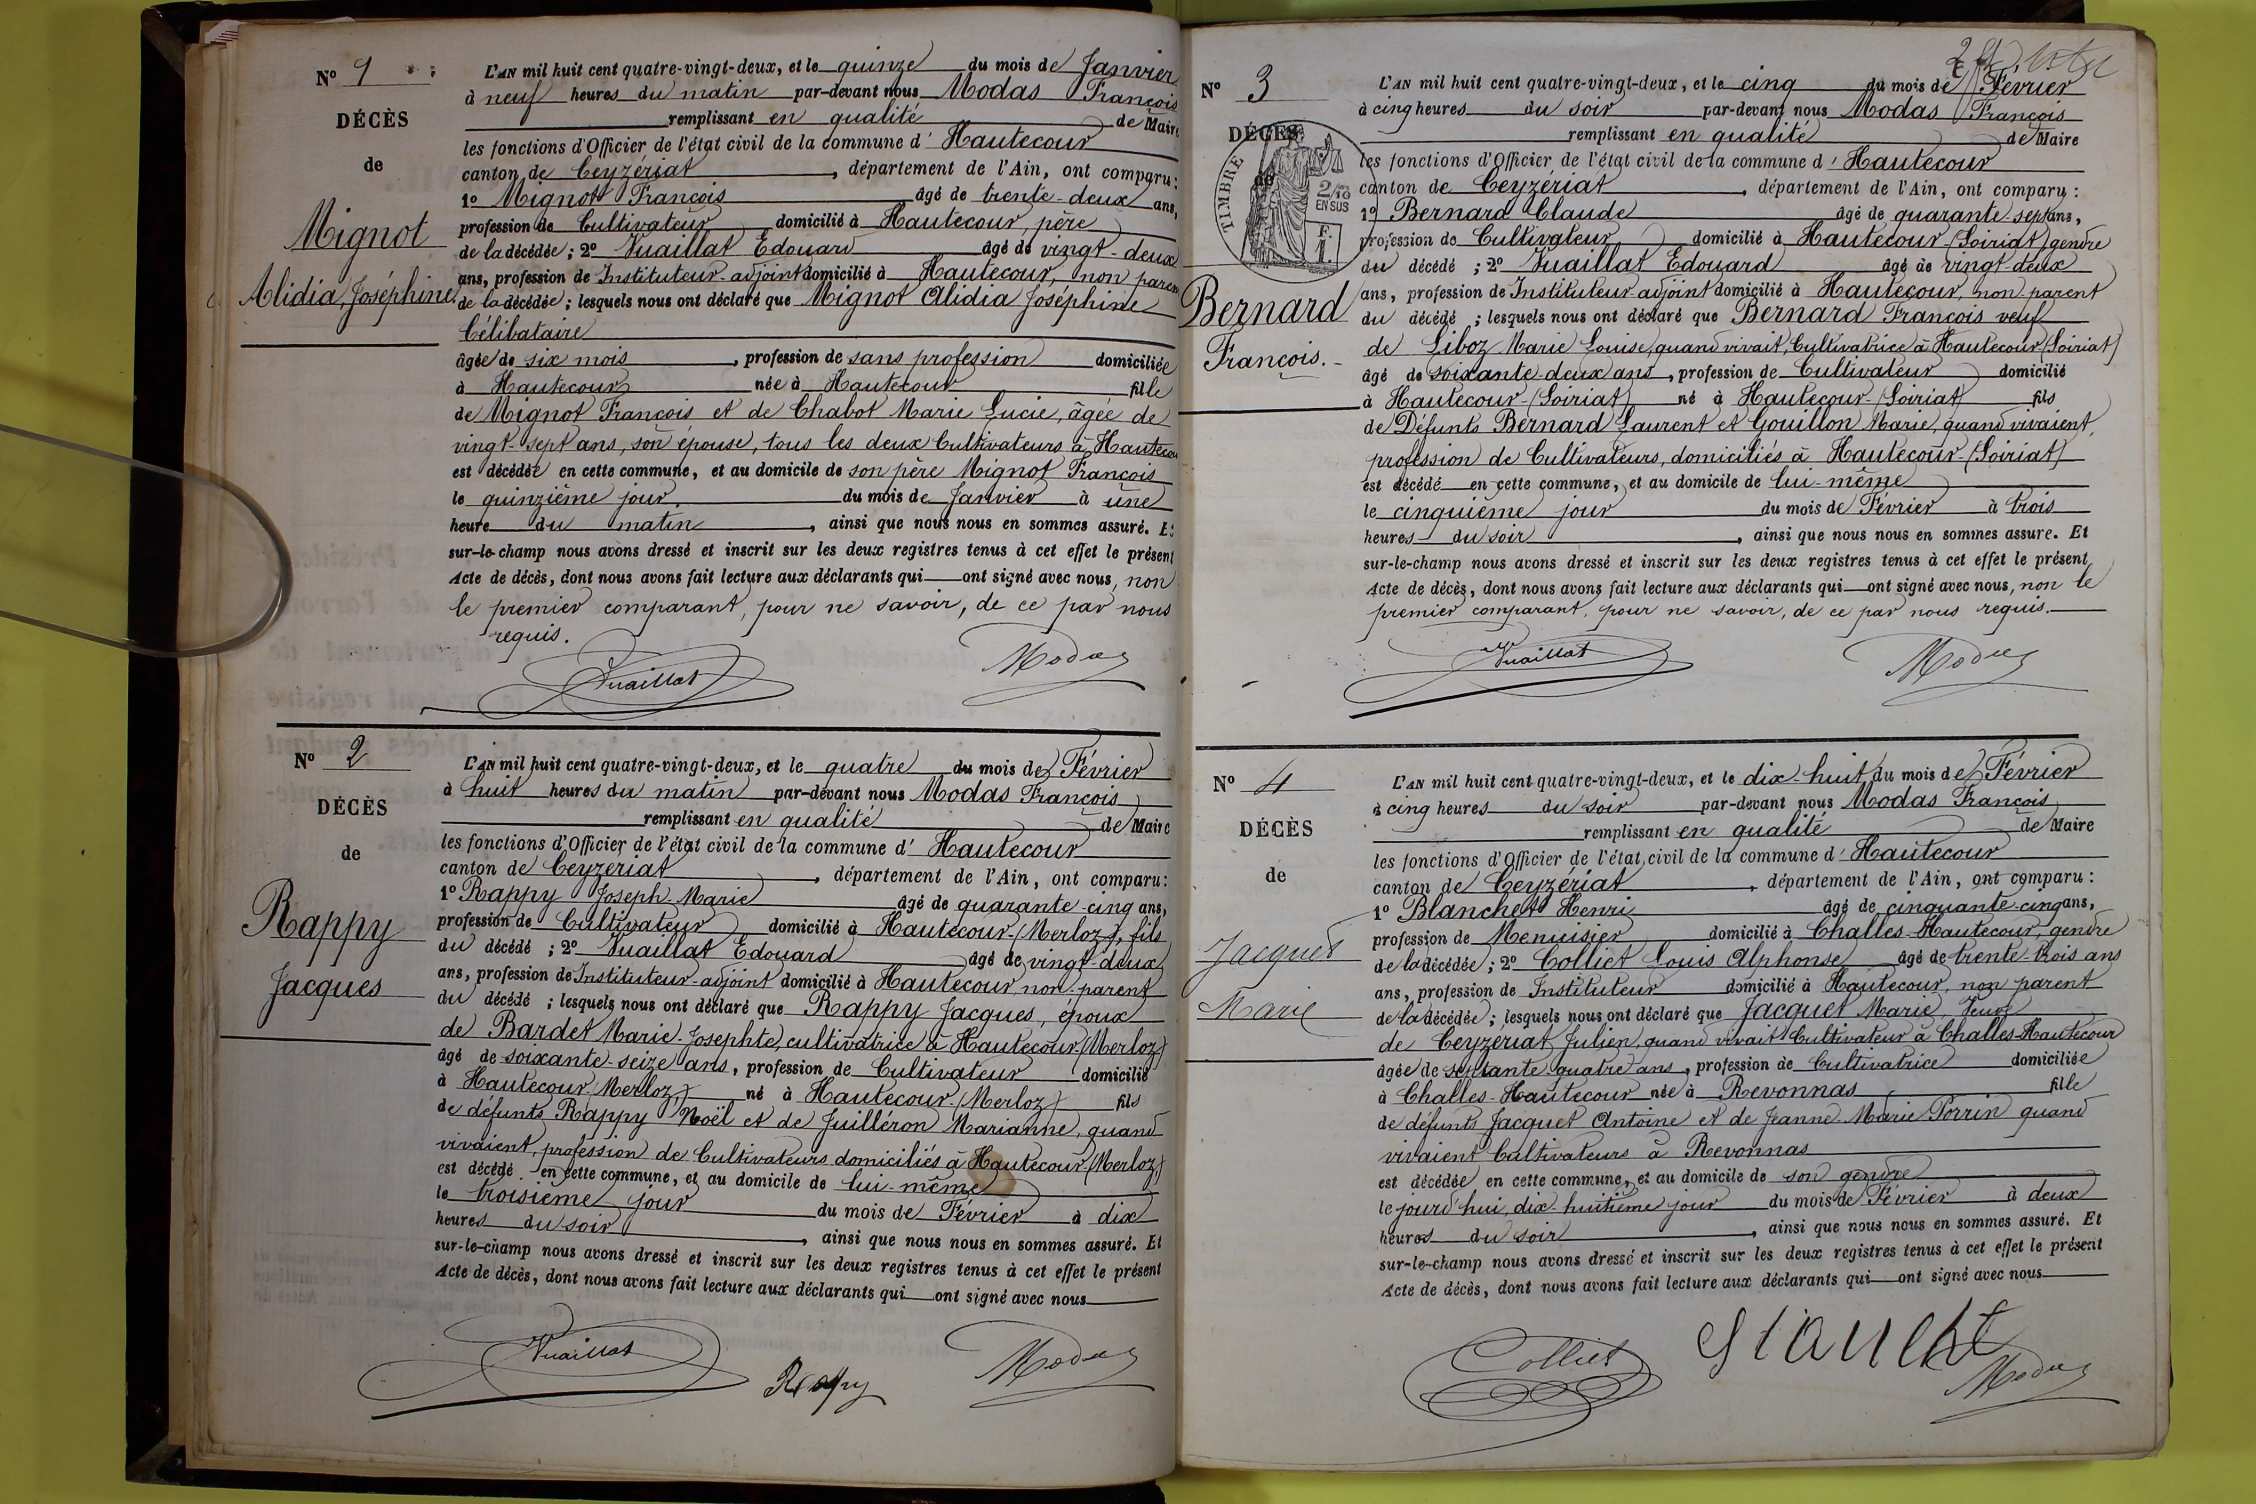 Nº 1
DÉCÈS
de
Mignot
Alidia, Joséphine
L'AN mil huit cent quatre-vingt-deux, et le quinze du mois de Janvier
à neuf heures du matin par-devant nous Modas François
remplissant en qualité de Maire
les fonctions d'Officier de l'état civil de la commune d' Hautecour
canton de Ceyzériat, département de l'Ain, ont comparu:
1º Mignot François âgé de trente-deux ans,
profession de Cultivateur domicilié à Hautecour, père
de la décédée; 2º Vuaillat Edouard âgé de vingt-deux
ans, profession de Instituteur-adjoint domicilié à Hautecour, non paren
de la décédée; lesquels nous ont déclaré que Mignot Alidia Joséphine
Célibataire
âgée de six mois, profession de sans profession domiciliée
à Hautecour née à Hautecour fille
de Mignot François et de Chabot Marie Lucie, âgée de
vingt-sept ans, son épouse, tous les deux Cultivateurs à Hauteco
est décédée en cette commune, et au domicile de son père Mignot François
le quinzième jour du mois de Janvier à une
heure du matin, ainsi que nous nous en sommes assuré. Et
sur-le-champ nous avons dressé et inscrit sur les deux registres tenus à cet effet le présent
Acte de décès, dont nous avons fait lecture aux déclarants qui ont signé avec nous, non
le premier comparant, pour ne savoir, de ce par nous
requis.
Vuaillat Modas
Nº 2
DÉCÈS
de
Rappy
Jacques
L'AN mil huit cent quatre-vingt-deux, et le quatre du mois de Février
à huit heures du matin par-devant nous Modas François
remplissant en qualité de Maire
les fonctions d'Officier de l'état civil de la commune d' Hautecour
canton de Ceyzeriat, département de l'Ain, ont comparu:
1º Rappy Joseph-Marie âgé de quarante-cinq ans,
profession de Cultivateur domicilié à Hautecour-(Merloz), fils
du décédé; 2º Vuaillat Edouard âgé de vingt-deux
ans, profession de Instituteur-adjoint domicilié à Hautecour, non-parent
du décédé; lesquels nous ont déclaré que Rappy Jacques, époux
de Bardet Marie-Josephte, cultivatrice à Hautecour-(Merloz)
âgé de soixante-seize ans, profession de Cultivateur domicilié
à Hautecour (Merloz) né à Hautecour-(Merloz) fils
de défunts Rappy Noël et de Juilléron Marianne, quand
vivaient, profession de Cultivateurs domiciliés à Hautecour-(Merloz)
est décédé en cette commune, et au domicile de lui-même
le troisième jour du mois de Février à dix
heures du soir, ainsi que nous nous en sommes assuré. Et
sur-le-champ nous avons dressé et inscrit sur les deux registres tenus à cet effet le présent
Acte de décès, dont nous avons fait lecture aux déclarants qui ont signé avec nous
Vuaillat Rappy Modas
Nº 3
DÉCÈS
de
TIMBRE
2/10
EN SUS
Bernard
François.
L'AN mil huit cent quatre-vingt-deux, et le cinq du mois de Février
à cinq heures du soir par-devant nous Modas François
remplissant en qualité de Maire
les fonctions d'Officier de l'état civil de la commune d' Hautecour
canton de Ceyzériat, département de l'Ain, ont comparu:
1º Bernard Claude âgé de quarante-sept ans,
profession de Cultivateur domicilié à Hautecour-(Soiriat) gendre
du décédé; 2º Vuaillat Edouard âgé de vingt-deux
ans, profession de Instituteur-adjoint domicilié à Hautecour, non-parent
du décédé; lesquels nous ont déclaré que Bernard François veuf
de Liboz Marie Louise, quand vivait, Cultivatrice à Hautecour (Soiriat)
âgé de soixante-deux ans, profession de Cultivateur domicilié
à Hautecour-(Soiriat) né à Hautecour-(Soiriat) fils
de Défunts Bernard Laurent et Gouillon Marie, quand vivaient,
profession de Cultivateurs, domiciliés à Hautecour-(Soiriat)
est décédé en cette commune, et au domicile de lui-même
le cinquième jour du mois de Février à trois
heures du soir, ainsi que nous nous en sommes assure. Et
sur-le-champ nous avons dressé et inscrit sur les deux registres tenus à cet effet le présent
Acte de décès, dont nous avons fait lecture aux déclarants qui ont signé avec nous, non le
premier comparant, pour ne savoir, de ce par nous requis.
Vuaillat Modas
Nº 4
DÉCÈS
de
Jacquet
Marie
L'AN mil huit cent quatre-vingt-deux, et le dix-huit du mois de Février
à cinq heures du soir par-devant nous Modas François
remplissant en qualité de Maire
les fonctions d'Officier de l'état civil de la commune d' Hautecour
canton de Ceyzériat, département de l'Ain, ont comparu:
1º Blanchet Henri âgé de cinquante-cinq ans,
profession de Menuisier domicilié à Challes-Hautecour, gendre
de la décédée; 2º Colliet Louis Alphonse âgé de trente-trois ans
ans, profession de Instituteur domicilié à Hautecour, non parent
de la décédée; lesquels nous ont déclaré que Jacquet Marie, Veuve
de Ceyzériat Julien, quand vivait Cultivateur à Challes-Hautecour
âgée de septante quatre ans, profession de Cultivatrice domiciliée
à Challes-Hautecour née à Revonnas fille
de défunts Jacquet Antoine et de Jeanne-Marie Porrin quand
vivaient Cultivateurs à Revonnas
est décédée en cette commune, et au domicile de son gendre
le jourd'hui, dix-huitième jour du mois de Février à deux
heures du soir, ainsi que nous nous en sommes assuré. Et
sur-le-champ nous avons dressé et inscrit sur les deux registres tenus à cet effet le présent
Acte de décès, dont nous avons fait lecture aux déclarants qui ont signé avec nous
Colliet Modas